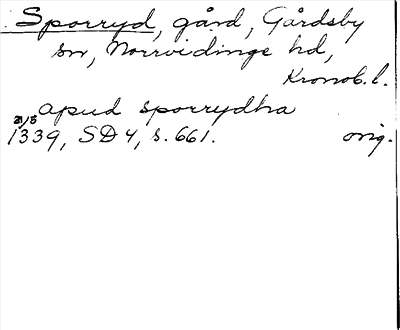 Sporryd, gård, Gårdsby
sn, Norrvidinge hd,
Kronob. l.
apud sporrydha
31/5
1339, SD 4, s. 661. orig.